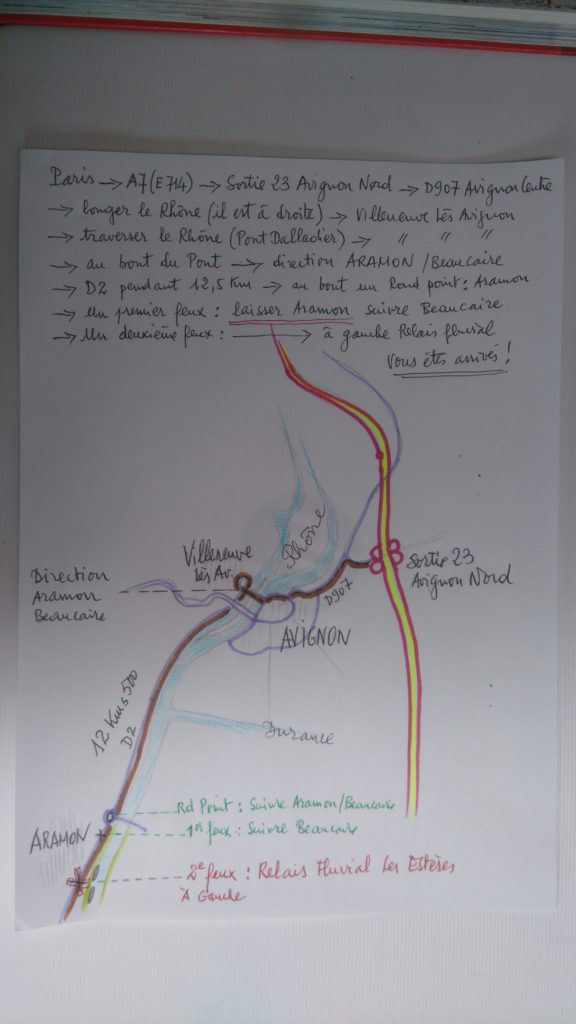 Paris → A7 (E714) → Sortie 23 Avignon Nord → D907 Avignon Centre
→ longer le Rhône (il est à droite) → Villeneuve Lès Avignon
→ traverser le Rhône (Pont Dalladier) → " " "
→ au bout du Pont → direction ARAMON / Beaucaire
→ D2 pendant 12,5 Km → au bout un Rond point : Aramon
→ Un premier feux : laisser Aramon suivre Beaucaire
→ Un deuxième feux : → à gauche Relais fluvial
Vous êtes arrivés !
Rhône
Villeneuve
Lès Av.
Sortie 23
Avignon Nord
Direction
Aramon
Beaucaire
D907
AVIGNON
12 Kms 500
D2
Durance
Rd Point : Suivre Aramon/Beaucaire
ARAMON
1er feux : Suivre Beaucaire
2e feux : Relais Fluvial Les Estères
À Gauche